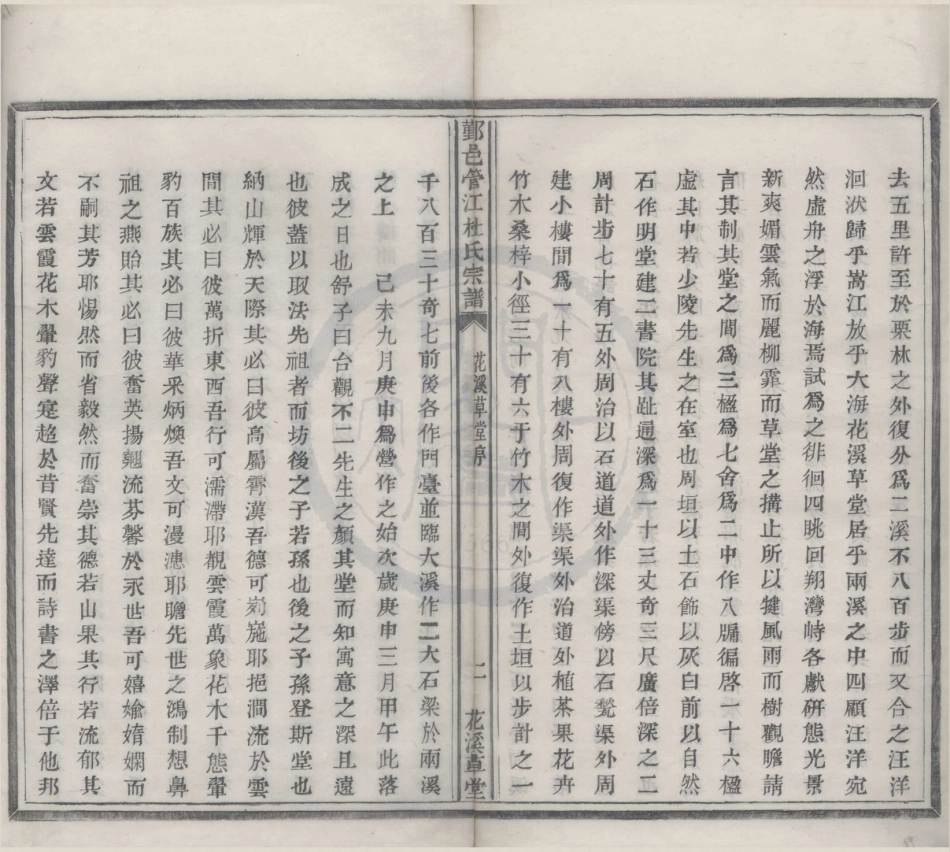 去五里許至於栗林之外復分爲二溪不八百步而又合之汪洋
洄洑歸乎嵩江放乎大海花溪草堂居乎兩溪之中四顧汪洋宛
然虛舟之浮於海焉試爲之徘徊四眺回翔灣峙各獻研態光景
新爽媚雲氣而麗柳霏而草堂之搆止所以犍風雨而樹觀瞻請
言其制其堂之間爲三楹爲七舍爲二中作八牖徧啓一十六楹
虛其中若少陵先生之在室也周垣以土石飾以灰白前以自然
石作明堂建二書院其趾通深爲一十三丈奇三尺廣倍深之二
周計步七十有五外周治以石道道外作深渠傍以石甃渠外周
建小樓間爲一十有八樓外周復作渠渠外治道外植茶果花卉
竹木桑梓小徑三十有六于竹木之間外復作土垣以步計之一
鄞邑管江杜氏宗譜
花溪草堂序
二
花溪草堂
千八百三十奇七前後各作門臺並臨大溪作二大石梁於兩溪
之上 己未九月庚申爲營作之始次歲庚申三月甲午此落
成之日也舒子曰台觀不二先生之顏其堂而知寓意之深且遠
也彼蓋以取法先祖者而坊後之子若孫也後之子孫登斯堂也
納山輝於天際其必曰彼高屬霄漢吾德可 耶挹澗流於雲
間其必曰彼萬折東西吾行可濡滯耶覩雲霞萬象花木千態翬
豹百族其必曰彼華采炳煥吾文可漫漶耶瞻先世之鴻制想鼻
祖之燕貽其必曰彼奮英揚翹流芬馨於永世吾可嬉婾媠嫻而
不嗣其芳耶惕然而省毅然而奮崇其德若山果其行若流郁其
文若雲霞花木翬豹聲寔超於昔賢先達而詩書之澤倍于他邦